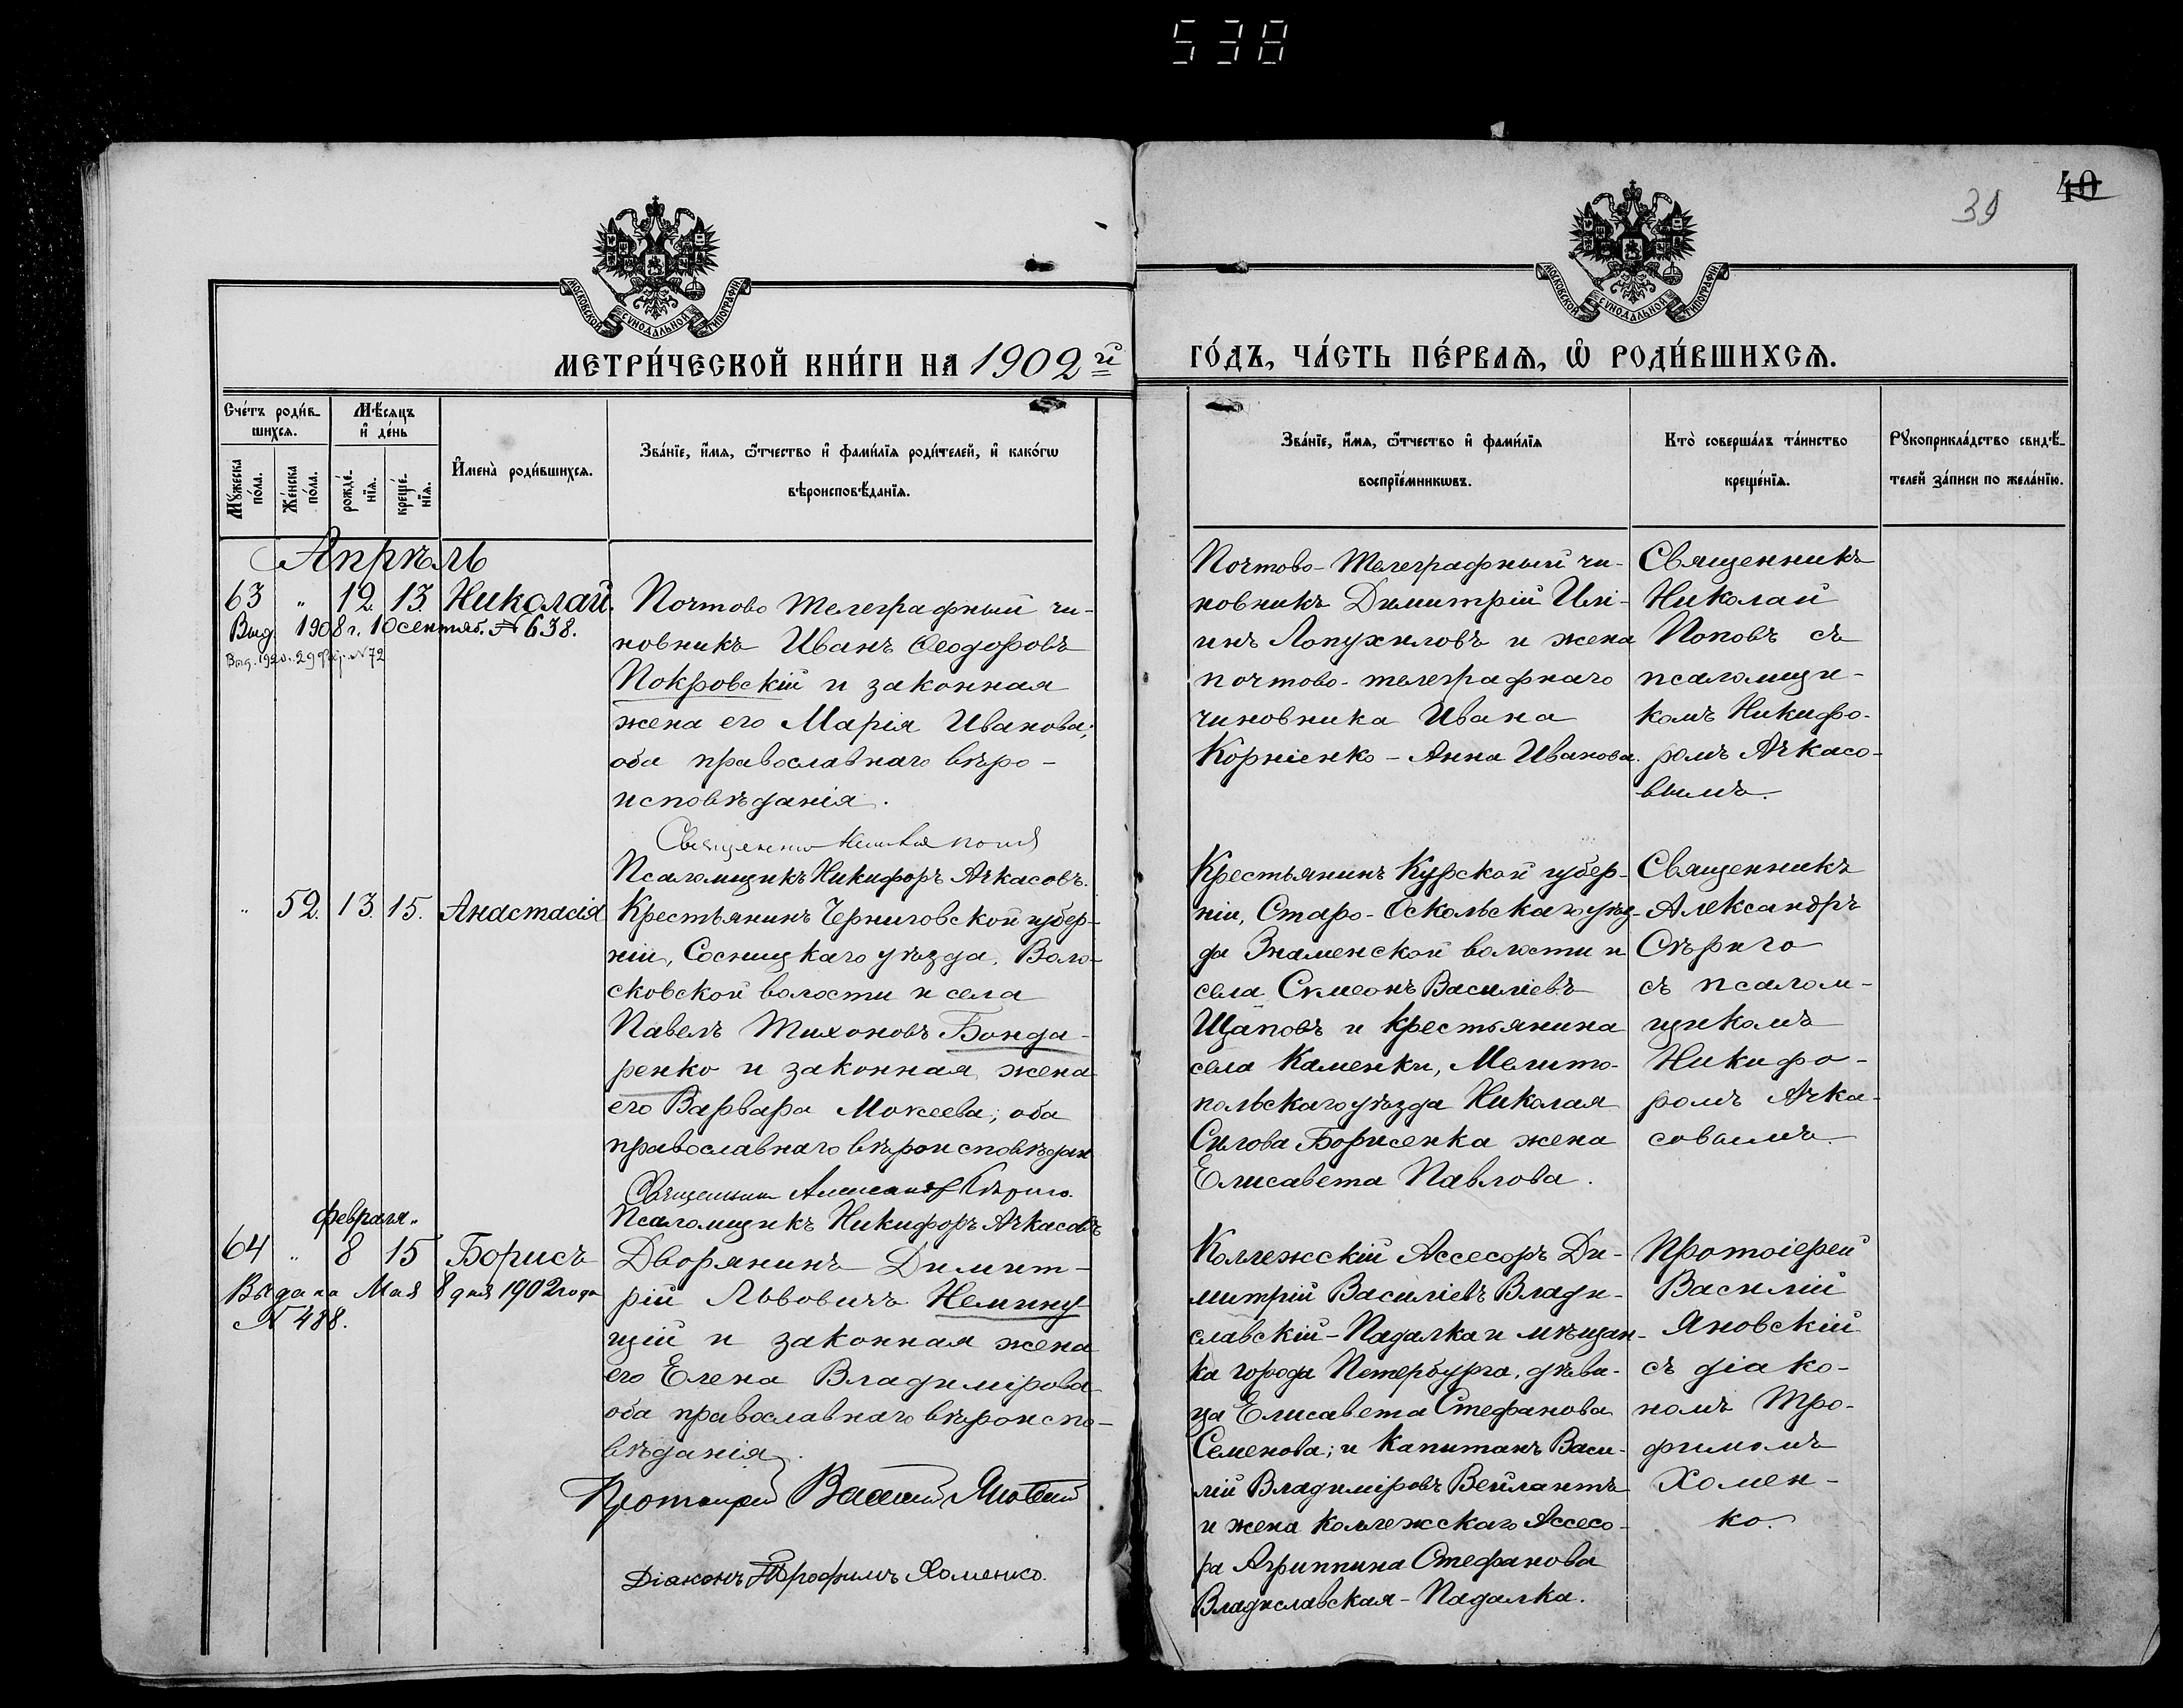 538
39
40
МОСКОВСКОЙ СѴНОДАЛЬНОЙ ТИПОГРАФІИ
МОСКОВСКОЙ СѴНОДАЛЬНОЙ ТИПОГРАФІИ
МЕТРИ́ЧЕСКОЙ КНИ́ГИ НА 1902й
ГО́ДЪ, ЧА́СТЬ ПЕ́РВАѦ, Ѡ҆ РОДИ́ВШИХСѦ.
Сче́тъ роди́в-
шихсѧ.
Мꙋ́жеска
по́ла.
Же́нска
по́ла.
Мѣ́сѧцъ
и҆ де́нь
рожде́-
нїѧ.
креще́-
нїѧ.
И҆мена̀ роди́вшихсѧ.
Зва́нїе, и҆́мѧ, ѻ҆́тчество и҆ фами́лїѧ роди́телей, и҆ како́гѡ
вѣроисповѣ́данїѧ.
Зва́нїе, и҆́мѧ, ѻ҆́тчество и҆ фами́лїѧ
воспрїе́мникѡвъ.
Кто̀ соверша́лъ та́инство
креще́нїѧ.
Рꙋкоприкла́дство свидѣ́-
телей за́писи по жела́нїю.
Апрѣль
63 " 12. 13. Николай.
Выд. 1908 г. 10 сентяб. № 638.
Выд. 1920. 29 фвр. № 72
Почтово Телеграфный чи-
новникъ Иванъ Ѳеодоровъ
Покровскій и законная
жена его Марія Иванова;
оба православнаго вѣро-
исповѣданія.
Священникъ Николай Попов
Псаломщикъ Никифоръ Ачкасовъ.
Почтово-Телеграфный чи-
новникъ Димитрій Или-
инъ Лопухиловъ и жена
почтово-телеграфнаго
чиновника Ивана
Корніенко - Анна Иванова.
Священникъ
Николай
Поповъ съ
псаломщи-
комъ Никифо-
ромъ Ачкасо-
вымъ.
" 52. 13. 15. Анастасія
Крестьянинъ Черниговской губер-
ніи, Сосницкаго уѣзда, Воло-
сковской волости и села
Павелъ Тихоновъ Бонда-
ренко и законная жена
его Варвара Мокеева; оба
православнаго вѣроисповѣдан
Священникъ Александръ Сѣриго.
Псаломщикъ Никифоръ Ачкасовъ
Крестьянинъ Курской губер-
ніи, Старо-Оскольскаго уѣз-
да Знаменской волости и
села Симеонъ Василіевъ
Щаповъ и крестьянина
села Каменки, Мелито-
польскаго уѣзда Николая
Силова Борисенка жена
Елисавета Павлова.
Священникъ
Александръ
Сѣриго
съ псалом-
щикомъ
Никифо-
ромъ Ачка-
совымъ.
февраля
64 " 8 15 Борисъ
Выдана Мая 8 дня 1902 года
№ 488.
Дворянинъ Димит-
рій Львовичъ Немину
щій и законная жена
его Елена Владимірова
оба православнаго вѣроиспо-
вѣданія.
Протоіерей Василій Яновскій
Діаконъ Трофимъ Хоменко.
Коллежскій Ассесоръ Ди-
митрій Василіевъ Влади-
славскій-Падалка и мѣщан-
ка города Петербурга, дѣви-
ца Елисавета Стефанова
Семенова; и Капитанъ Васи-
лій Владиміровъ Вейлантъ
и жена Коллежскаго Ассесо-
ра Агриппина Стефанова
Владиславская-Падалка.
Протоіерей
Василій
Яновскій
съ діако-
номъ Тро-
фимомъ
Хомен-
ко.